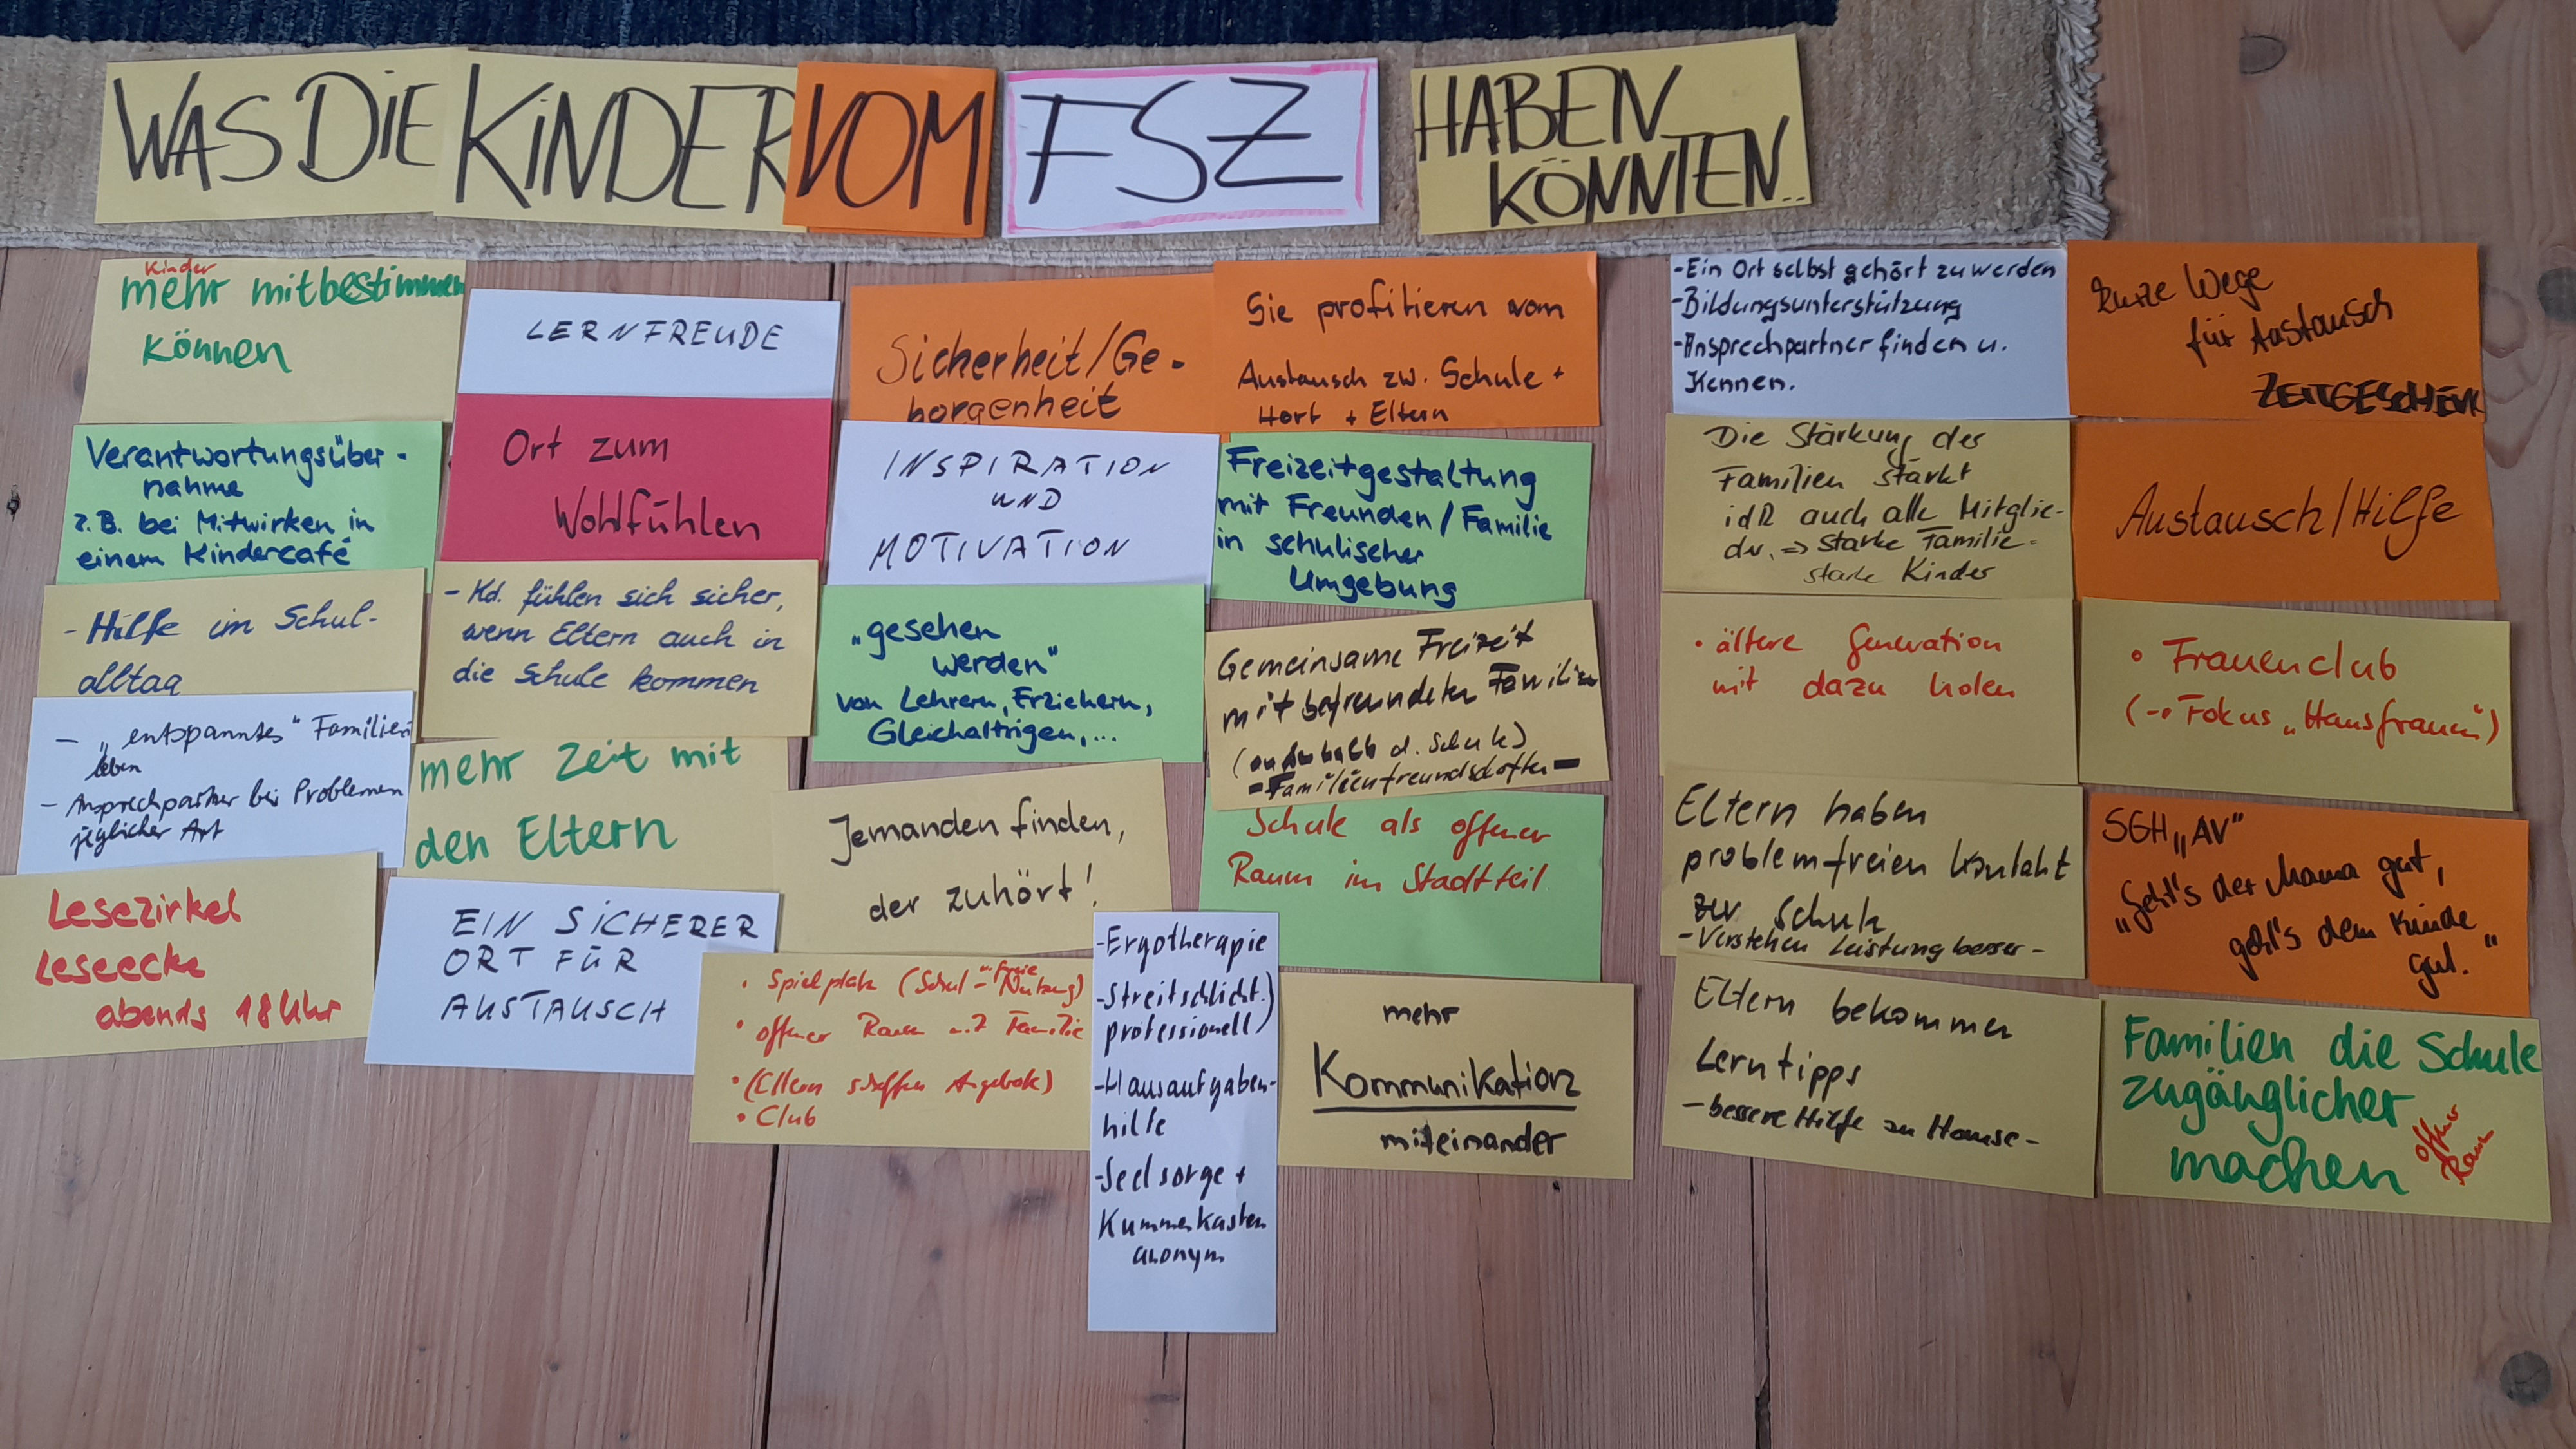 WAS DIE KINDER VOM FSZ HABEN
KÖNNTEN..
Kinder
mehr mitbestimmen
können
Verantwortungsüber-
nahme
z.B. bei Mitwirken in
einem Kindercafé
- Hilfe im Schul-
alltag
- „entspanntes" Familien-
leben
- Ansprechpartner bei Problemen
jeglicher Art
Lesezirkel
Leseecke
abends 18 Uhr
LERNFREUDE
Ort zum
Wohlfühlen
- Kd. fühlen sich sicher,
wenn Eltern auch in
die Schule kommen
mehr Zeit mit
den Eltern
EIN SICHERER
ORT FÜR
AUSTAUSCH
Sicherheit/Ge-
borgenheit
INSPIRATION
UND
MOTIVATION
„gesehen
werden"
von Lehrern, Erziehern,
Gleichaltrigen,...
Jemanden finden,
der zuhört!
• Spielplatz (Schul - freie Nutzung)
• offener Raum mit Familie
• (Eltern schaffen Angebote)
• Club
- Ergotherapie
- Streitschlicht.)
professionell)
- Hausaufgaben-
hilfe
- Seelsorge +
Kummerkasten
anonym
Sie profitieren vom
Austausch zw. Schule +
Hort + Eltern
Freizeitgestaltung
mit Freunden / Familie
in schulischer
Umgebung
Gemeinsame Freizeit
mit befreundeten Familien
(außerhalb d. Schule)
- Familienfreundschaften -
Schule als offener
Raum im Stadtteil
mehr
Kommunikation
miteinander
- Ein Ort selbst gehört zu werden
- Bildungsunterstützung
- Ansprechpartner finden u.
Kennen.
Die Stärkung der
Familien stärkt
idR auch alle Mitglie-
der. => starke Familie-
starke Kinder
• ältere Generation
mit dazu holen
Eltern haben
problemfreien Kontakt
zur Schule
- Verstehen Leistung besser -
Eltern bekommen
Lerntipps
- bessere Hilfe zu Hause -
kurze Wege
für Austausch
ZEITGESCHENK
Austausch/Hilfe
• Frauenclub
(→ Fokus „Hausfrauen")
SGH „AV"
„Geht's der Mama gut,
geht's dem Kinde
gut."
Familien die Schule
zugänglicher
machen
offener
Raum